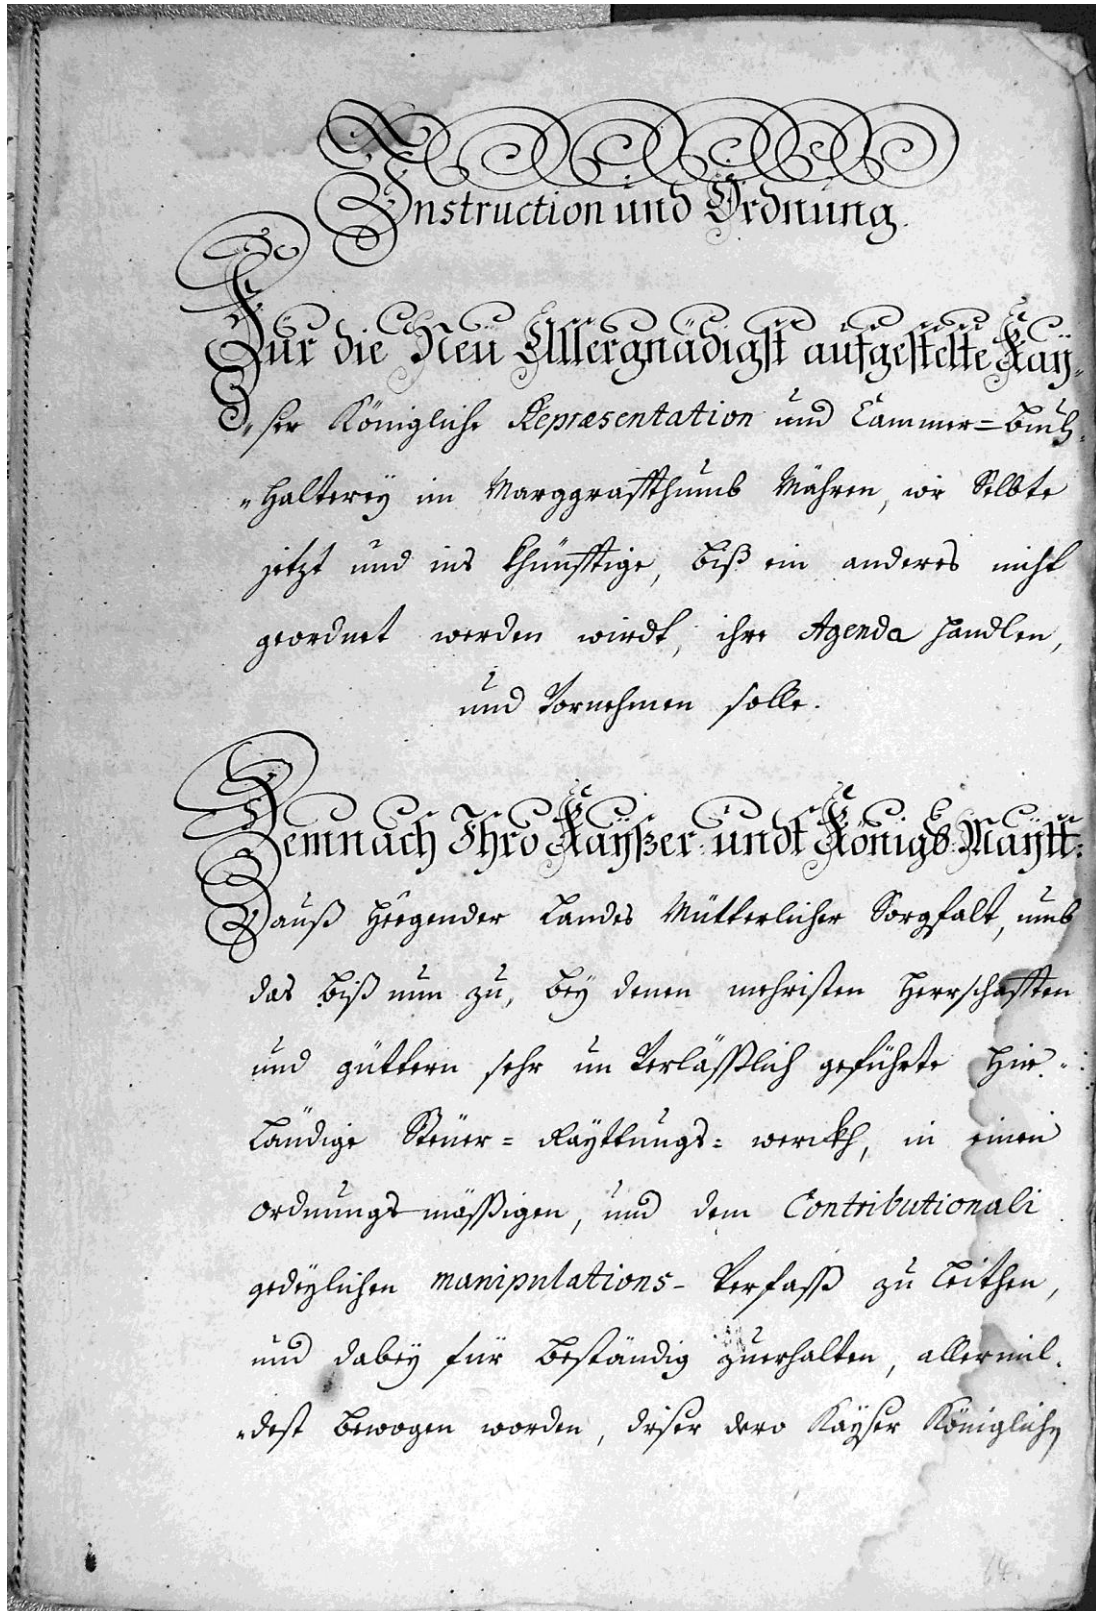 Instruction und Ordnung.
Für die Neü Allergnädigst aufgestelte Kaÿ„
„ser Königliche Repræsentation und Cammer=Buch„
„Halterey im Marggraffthumb Mähren, wie Selbte
jetzt und ins khünfftige, biß ein anderes nicht
geordnet werden wirdt, ihre Agenda handlen,
und Vornehmen solle.
Demnach Ihro Kaÿßer: undt Königl: Maÿtt:
auß Hegender Landes Mütterlicher Sorgfalt, umb
das biß nun zu, beÿ denen mehristen Herrschafften
und güttern sehr un Verläßlich geführte Hie„
Ländige Steüer= Raÿttungs= werckh, in einen
ordnungs-mäßigen, und dem Contributionali
gedeÿlichen manipulations- Verfaß zu leithen,
und dabeÿ für beständig zuerhalten, allermil„
„dest bewogen worden, diser dero Kaÿser Königlichen
64.